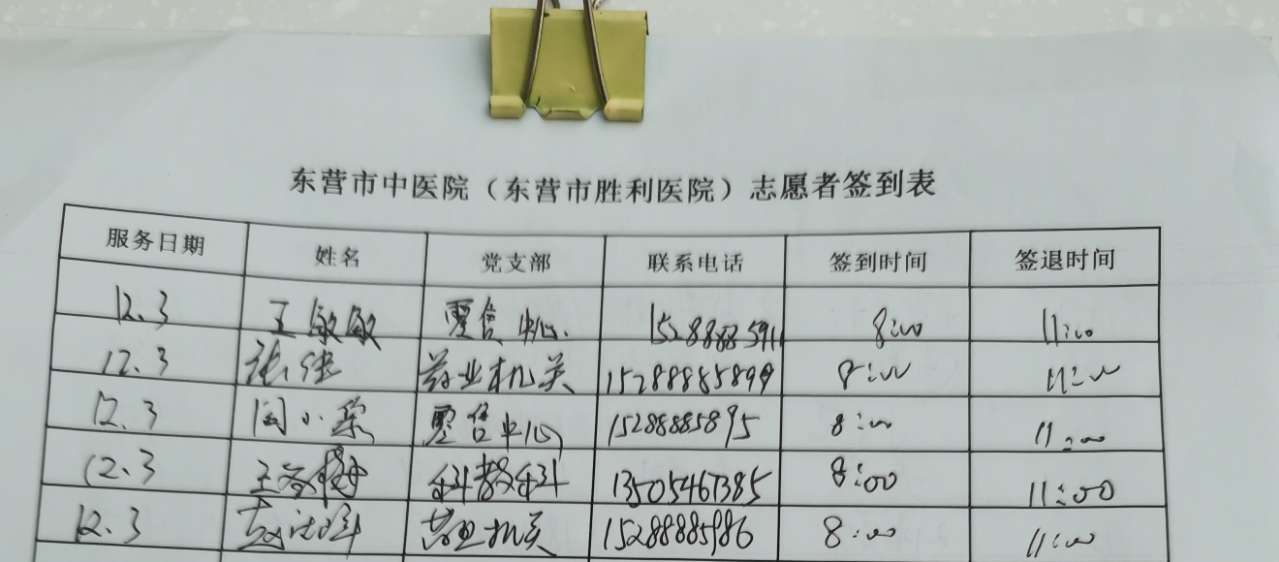 东营市中医院（东营市胜利医院）志愿者签到表
服务日期 姓名 党支部 联系电话 签到时间 签退时间
12.3 王敏敏 零售中心. 152888859 8:00 11:00
12.3 张 药业机关 15288885899 8:00 11:00
12.3 闫小 零售中心 15288885895 8:00 11:00
12.3 王 科教科 13505467385 8:00 11:00
12.3 药业机关 15288885986 8:00 11:00